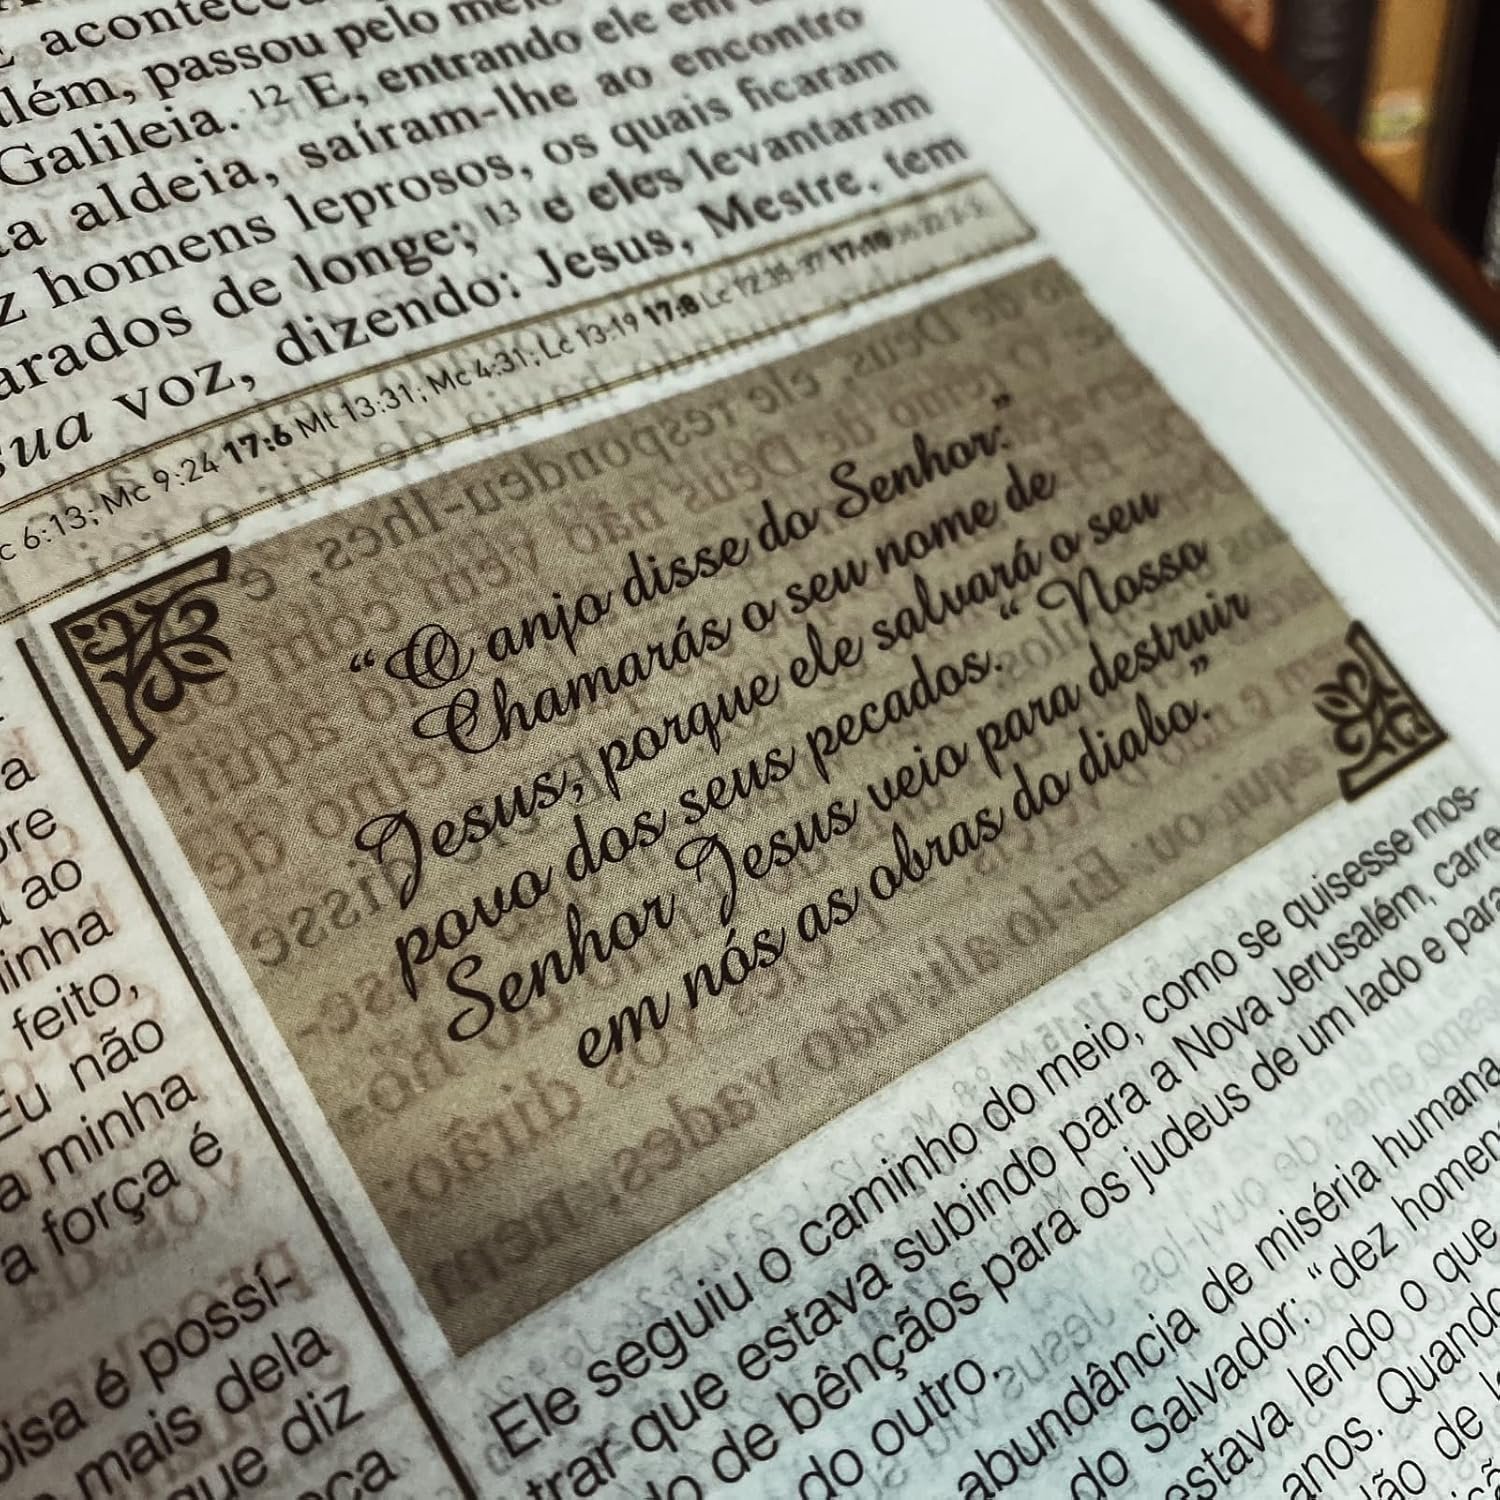 E acontece
lém, passou pelo mei
Galileia. 12 E, entrando ele em
a aldeia, saíram-lhe ao encontro
z homens leprosos, os quais ficaram
arados de longe; 13 e eles levantaram
sua voz, dizendo: Jesus, Mestre, tem
c 6:13; Mc 9:24 17:6 Mt 13:31; Mc 4:31; Lc 13:19 17:8 Lc 12:35-37 17:10
“O anjo disse do Senhor:”
Chamarás o seu nome de
Jesus; porque ele salvará o seu
povo dos seus pecados.“ Nosso
Senhor Jesus veio para destruir
em nós as obras do diabo.”
a
re
ao
inha
feito,
Eu não
a minha
a força é
oisa é possí-
mais dela
que diz
Ele seguiu o caminho do meio, como se quisesse mos-
trar que estava subindo para a Nova Jerusalém, carre
do de bênçãos para os judeus de um lado e para
do outro.
abundância de miséria humana
do Salvador: “dez homen
estava lendo o que
anos. Quando
ão de